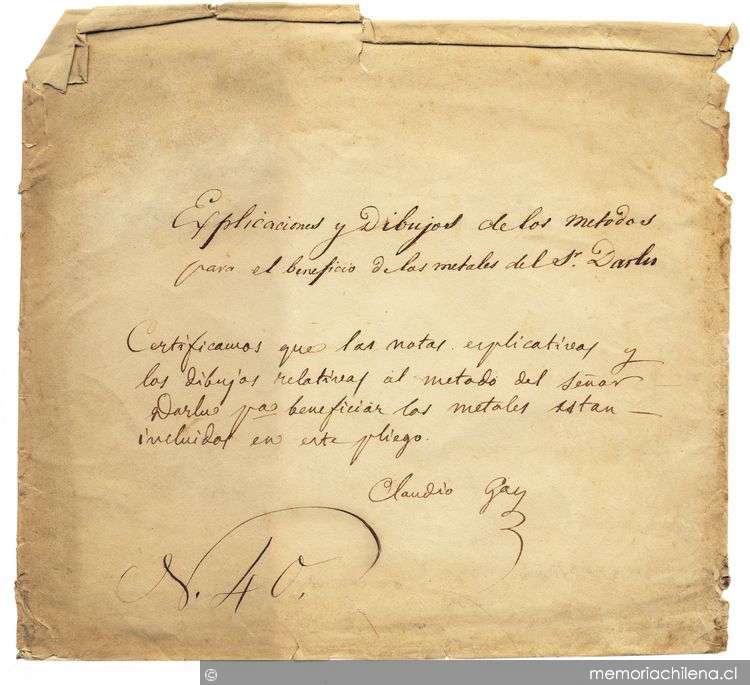 Explicaciones y Dibujos de los metodos
para el beneficio de los metales del Sr. Darlu
Certificamos que las notas explicativas y
los dibujos relativas al metodo del señor
Darlu pa. beneficiar los metales estan
incluidos en este pliego.
Claudio Gay
N. 40.
© memoriachilena.cl